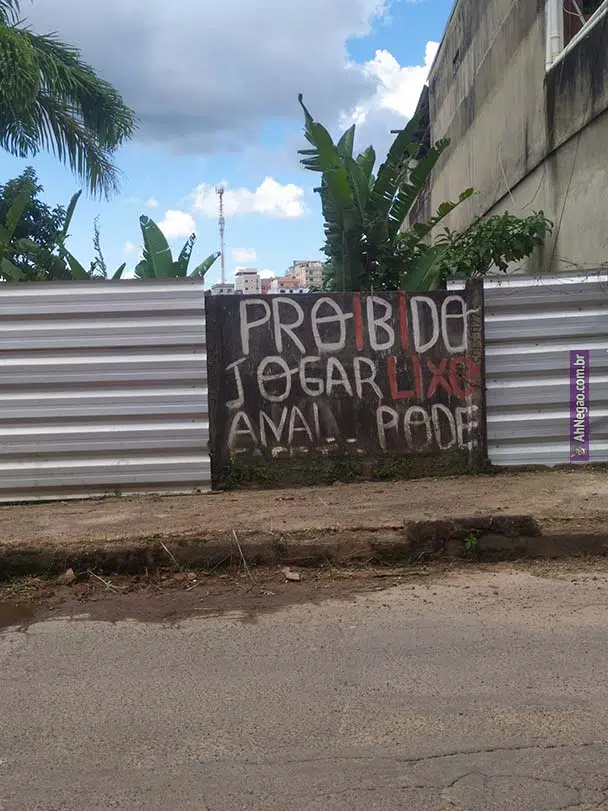 PROIBIDO
JOGAR LIXO
ANAL PODE
AhNegao.com.br